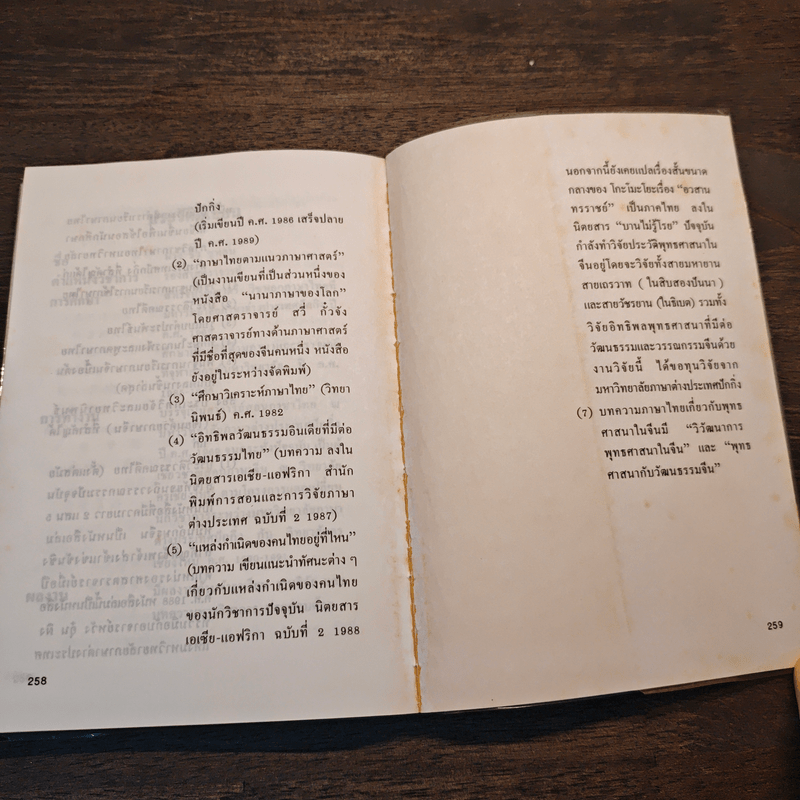 ปักกิ่ง
(เริ่มเขียนปี ค.ศ. 1986 เสร็จปลาย
ปี ค.ศ. 1989)
(2) “ภาษาไทยตามแนวภาษาศาสตร์”
(เป็นงานเขียนที่เป็นส่วนหนึ่งของ
หนังสือ “นานาภาษาของโลก”
โดยศาสตราจารย์ สวี่ กั๋วจัง
ศาสตราจารย์ทางด้านภาษาศาสตร์
ที่มีชื่อที่สุดของจีนคนหนึ่ง หนังสือ
ยังอยู่ในระหว่างจัดพิมพ์)
(3) “ศึกษาวิเคราะห์ภาษาไทย” (วิทยา
นิพนธ์) ค.ศ. 1982
(4) “อิทธิพลวัฒนธรรมอินเดียที่มีต่อ
วัฒนธรรมไทย” (บทความ ลงใน
นิตยสารเอเชีย-แอฟริกา สำนัก
พิมพ์การสอนและการวิจัยภาษา
ต่างประเทศ ฉบับที่ 2 1987)
(5) “แหล่งกำเนิดของคนไทยอยู่ที่ไหน”
(บทความ เขียนแนะนำทัศนะต่าง ๆ
เกี่ยวกับแหล่งกำเนิดของคนไทย
ของนักวิชาการปัจจุบัน นิตยสาร
เอเซีย-แอฟริกา ฉบับที่ 2 1988
258
นอกจากนี้ยังเคยแปลเรื่องสั้นขนาด
กลางของ โกะโมะโยะเรื่อง “อวสาน
ทรราชย์” เป็นภาคไทย ลงใน
นิตยสาร “บานไม่รู้โรย” ปัจจุบัน
กำลังทำวิจัยประวัติพุทธศาสนาใน
จีนอยู่โดยจะวิจัยทั้งสายมหายาน
สายเถรวาท (ในสิบสองปันนา)
และสายวัชรยาน (ในธิเบต) รวมทั้ง
วิจัยอิทธิพลพุทธศาสนาที่มีต่อ
วัฒนธรรมและวรรณกรรมจีนด้วย
งานวิจัยนี้ ได้ขอทุนวิจัยจาก
มหาวิทยาลัยภาษาต่างประเทศปักกิ่ง
(7) บทความภาษาไทยเกี่ยวกับพุทธ
ศาสนาในจีนมี “วิวัฒนาการ
พุทธศาสนาในจีน” และ “พุทธ
ศาสนากับวัฒนธรรมจีน”
259